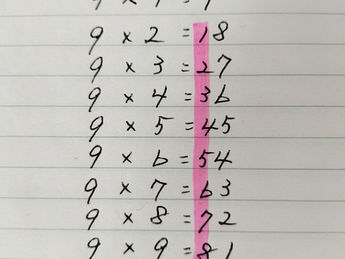 9 × 2 = 18
9 × 3 = 27
9 × 4 = 36
9 × 5 = 45
9 × 6 = 54
9 × 7 = 63
9 × 8 = 72
9 × 9 = 81